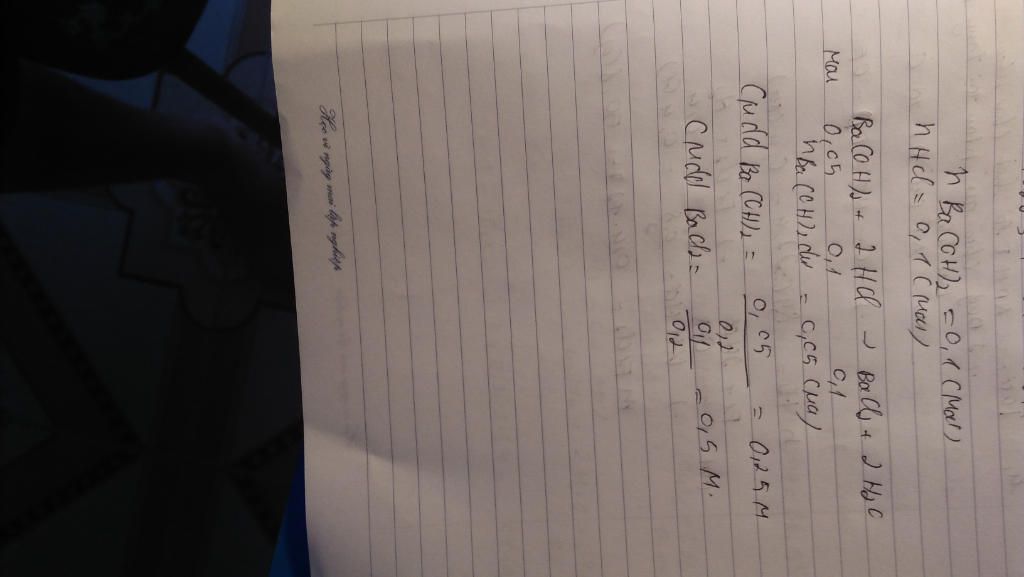 n Ba(OH)₂ = 0,1 (mol)
n HCl = 0,1 (mol)
Ba(OH)₂ + 2 HCl → BaCl₂ + 2 H₂O
mol 0,05 0,1 0,1
n Ba(OH)₂ dư = 0,05 (mol)
CM dd Ba(OH)₂ = 0,05 / 0,2 = 0,25 M
CM dd BaCl₂ = 0,1 / 0,2 = 0,5 M.
Học vì ngày mai lập nghiệp